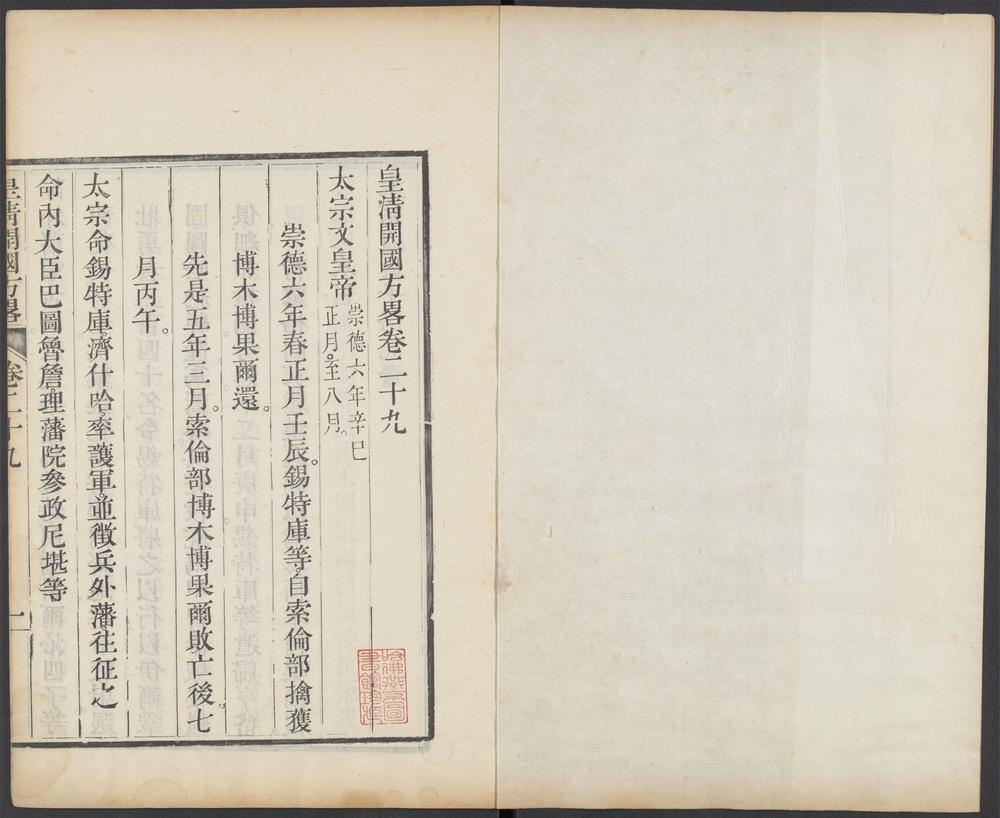 皇清開國方畧卷二十九
太宗文皇帝
崇德六年辛巳
正月至八月。
崇德六年春正月壬辰。錫特庫等自索倫部擒獲
博木博果爾還。
先是五年三月。索倫部博木博果爾敗亡後。七
月丙午。
太宗命錫特庫。濟什哈。率護軍。並徵兵外藩。往征之
命內大臣巴圖魯詹。理藩院參政尼堪等。
皇清開國方畧
卷二十九
一
哈佛燕京圖書館珍藏